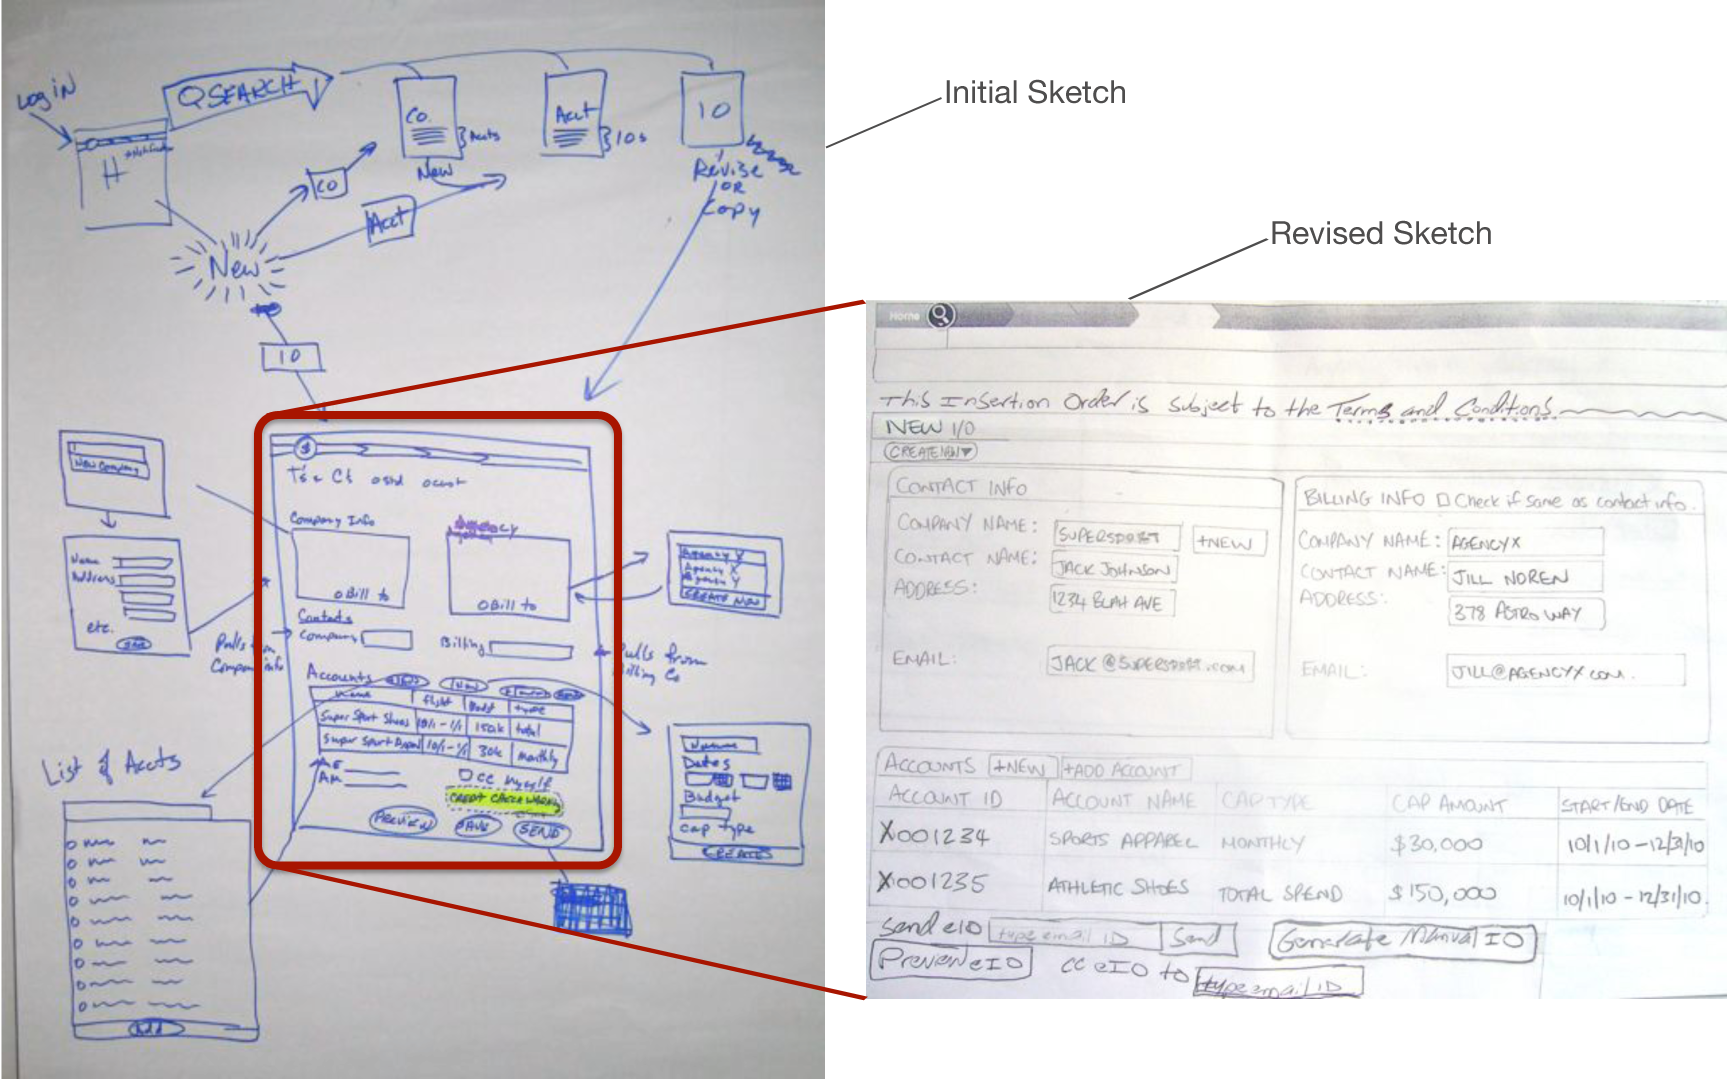 Initial Sketch
Revised Sketch
Log in
QSEARCH
H
CO.
} Accts
New
Acct
} IOs
IO
Revise
or
Copy
CO
Acct
New
IO
New Company
Name
Address
etc.
T's & C's
Company Info
Agency
O Bill to
O Bill to
Contacts
Company
Billing
Pulls from
Company info
Pulls from
Billing Co
Agency X
Agency X
Agency Y
CREATE NEW
Accounts
Name flight type
Super Sport Shoes 10/1 - 1/1 150k total
Super Sport 10/1 - 1/1 30k monthly
AE
AM
CC myself
CREDIT CHECK WARNING
PREVIEW SAVE SEND
Name
Dates
Budget
Cap type
CREATE
List of Accts
Add
Home
This Insertion Order is subject to the Terms and Conditions
NEW I/O
CREATE NEW
CONTACT INFO
COMPANY NAME: SUPERSPORT +NEW
CONTACT NAME: JACK JOHNSON
ADDRESS: 1234 BLAH AVE
EMAIL: JACK@SUPERSPORT.COM
BILLING INFO Check if same as contact info.
COMPANY NAME: AGENCYX
CONTACT NAME: JILL NOREN
ADDRESS: 378 ASTRO WAY
EMAIL: JILL@AGENCYX.COM.
ACCOUNTS +NEW +ADD ACCOUNT
ACCOUNT ID ACCOUNT NAME CAP TYPE CAP AMOUNT START/END DATE
X001234 SPORTS APPAREL MONTHLY $30,000 10/1/10 - 12/31/10
X001235 ATHLETIC SHOES TOTAL SPEND $150,000 10/1/10 - 12/31/10.
Send eIO type email ID Send Generate Manual IO
Preview eIO CC eIO to type email ID